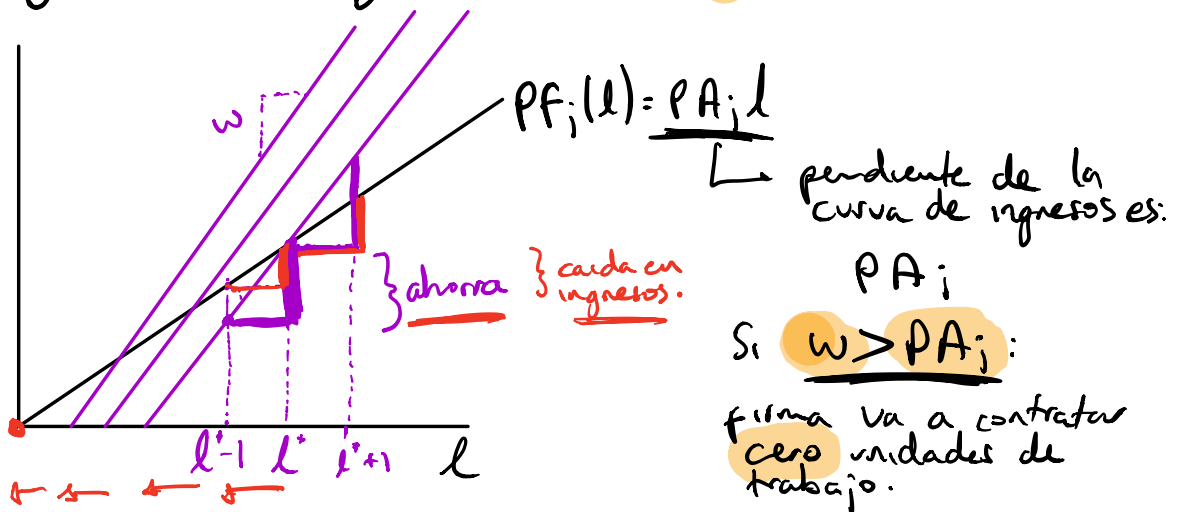 w
PF_j(l) = PA_j l
pendiente de la
curva de ingresos es:
PA_j
Si w > PA_j:
firma va a contratar
cero unidades de
trabajo.
} ahorra } caída en
ingresos.
l*-1 l* l*+1 l